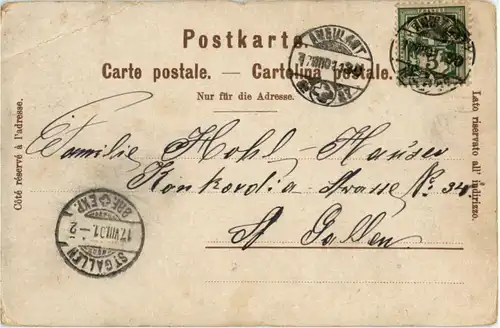 Postkarte.
Carte postale. — Cartolina postale.
Nur für die Adresse.
Côté réservé à l'adresse.
Lato riservato all' indirizzo.
Familie Hohl-Hauser
Konkordia-Strasse No. 34
St Gallen
AMBULANT
ST. GALLEN
17.VIII.01.-2
BRF. EXP.
5